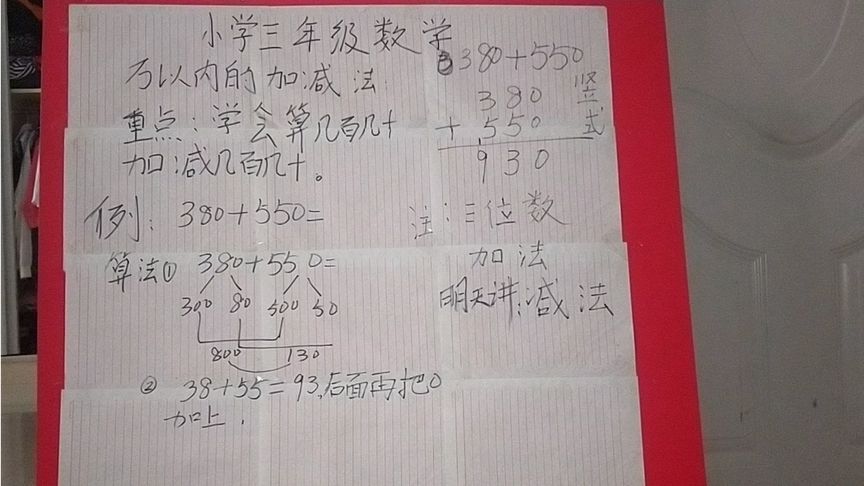 小学三年级数学
万以内的加减法
重点：学会算几百几十
加减几百几十。
例：380+550=
算法① 380+550=
300 80 500 50
800 130
② 38+55=93,后面再把0
加上.
③380+550
竖式
380
+550
930
注：三位数
加法
明天讲：减法